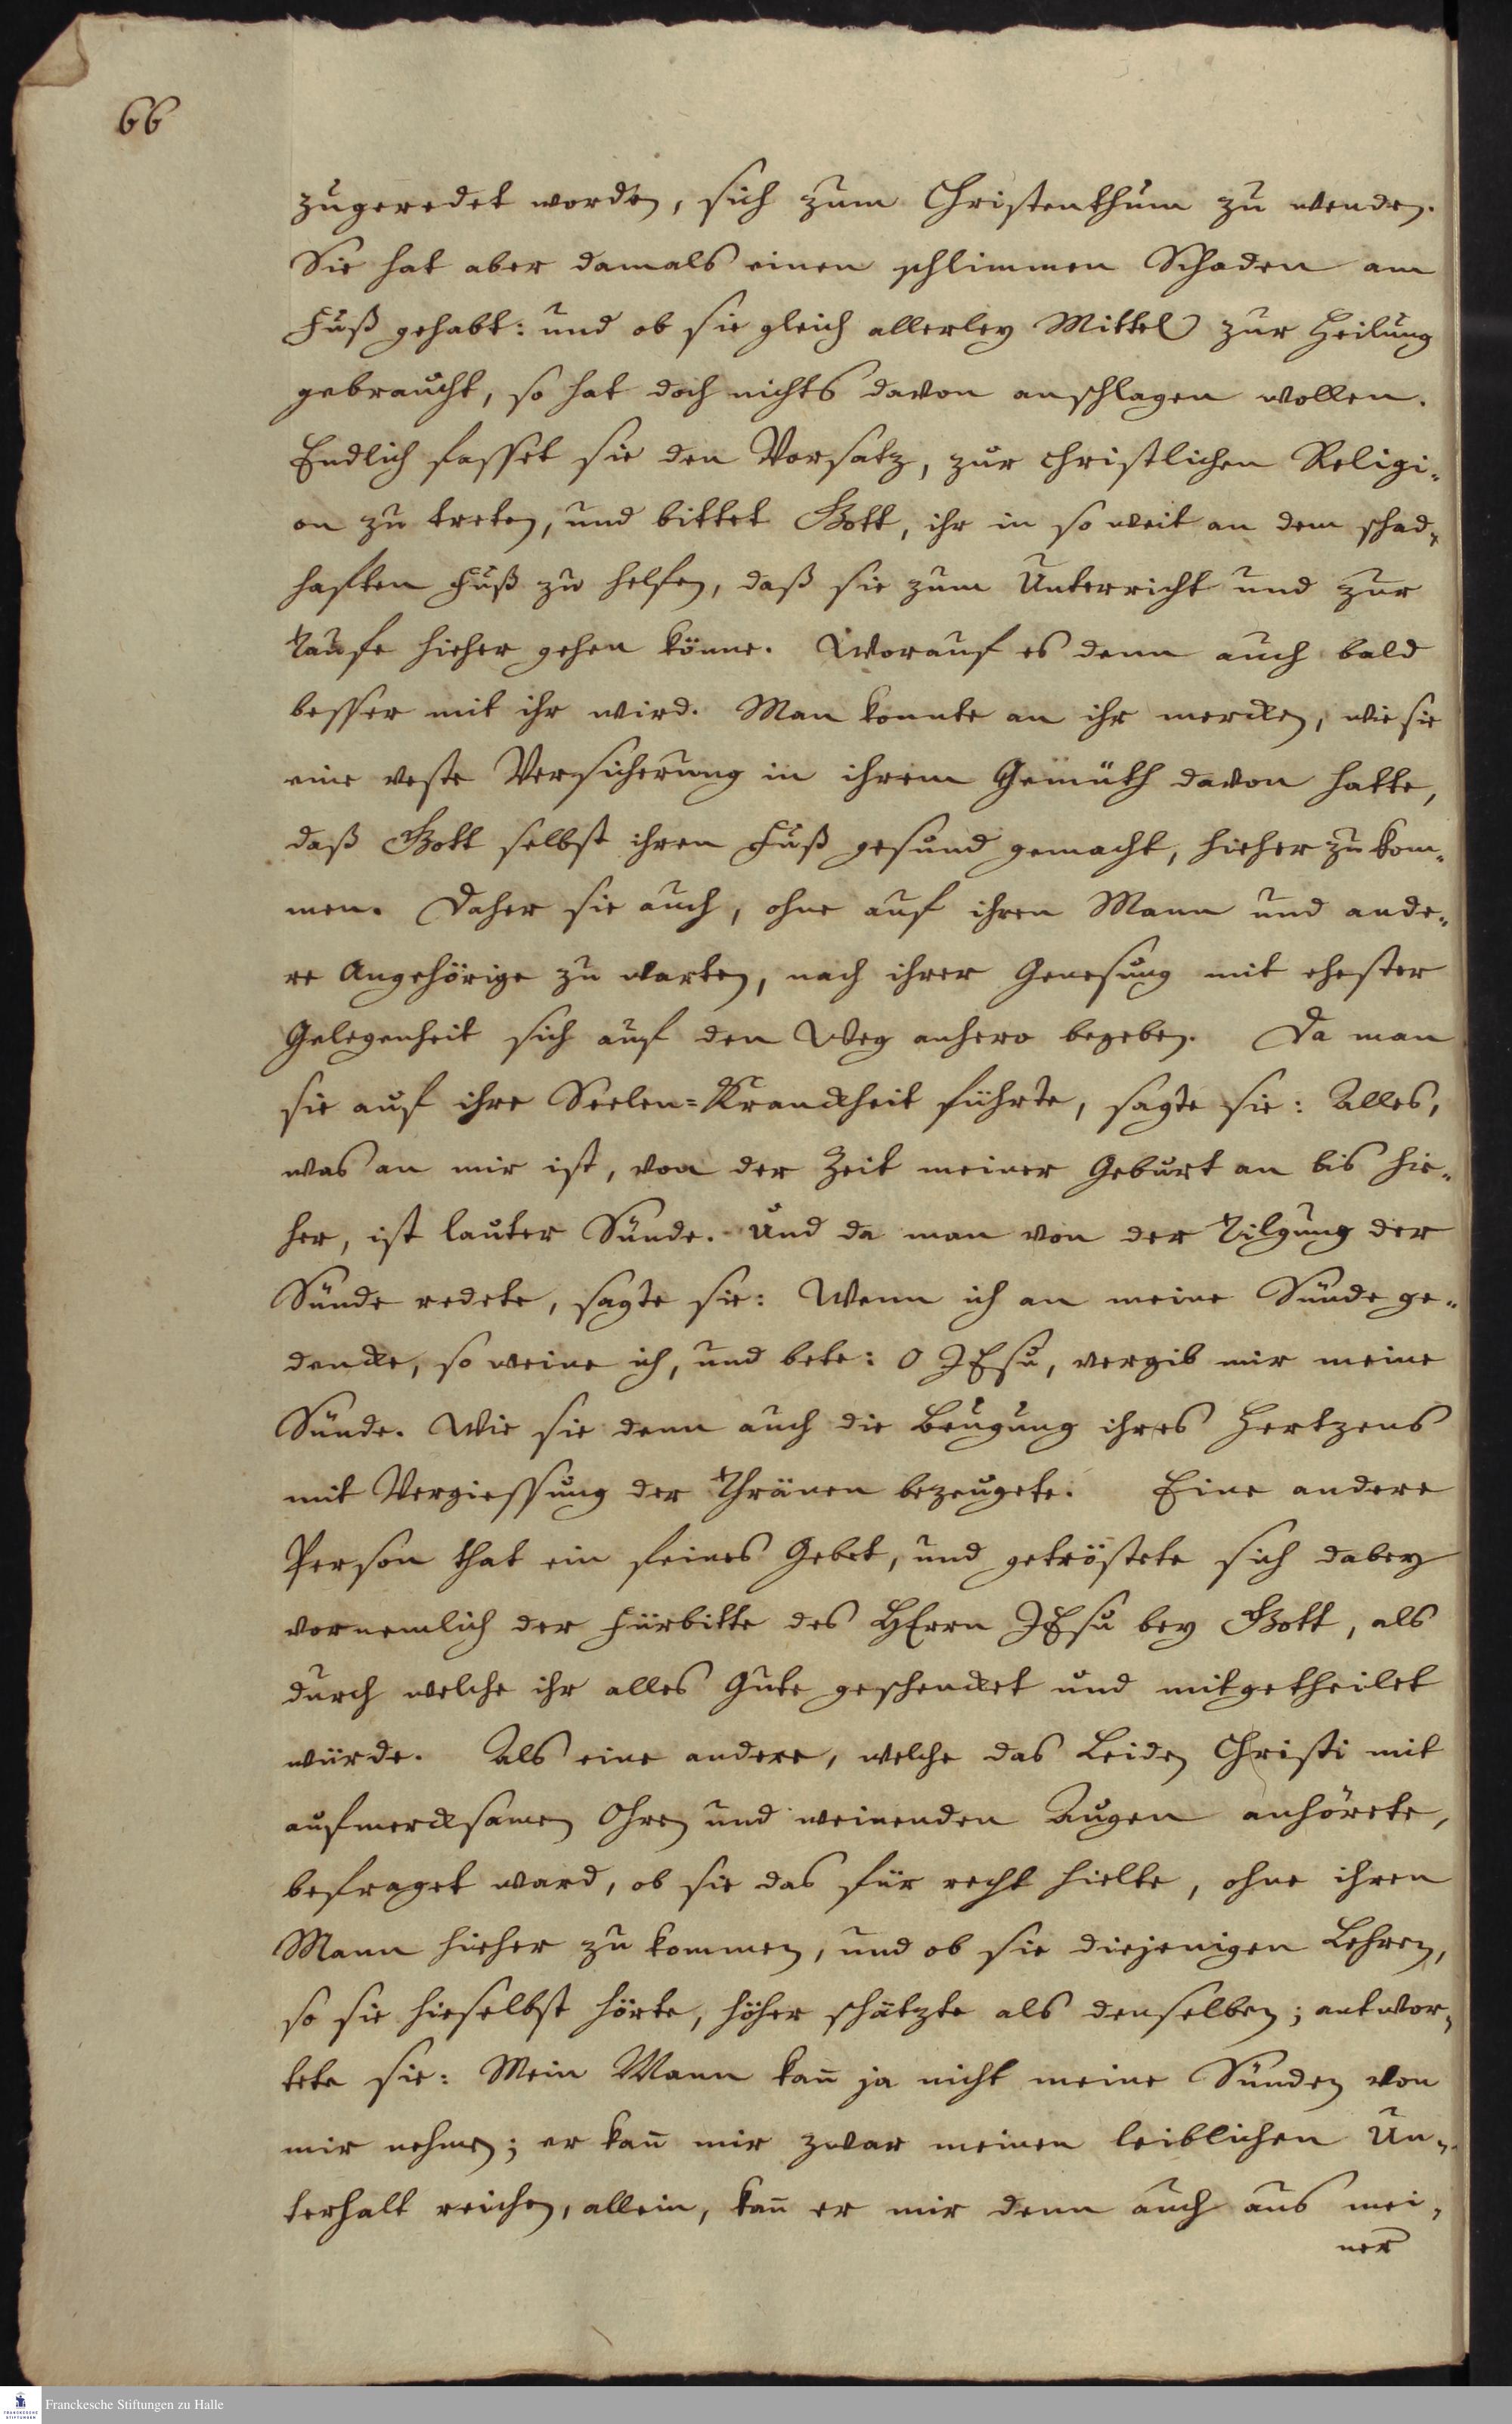 66
zugeredet worden, sich zum Christenthum zu wenden.
Sie hat aber damals einen schlimmen Schaden am
Fuß gehabt: und ob sie gleich allerley Mittel zur Heilung
gebraucht, so hat doch nichts davon anschlagen wollen.
Endlich fasset sie den Vorsatz, zur christlichen Religi-
on zu treten, und bittet Gott, ihr in so weit an dem schad-
haften Fuß zu helfen, daß sie zum Unterricht und zur
Taufe hieher gehen könne. Worauf es denn auch bald
besser mit ihr wird. Man konnte an ihr mercken, wie sie
eine veste Versicherung in ihrem Gemüth davon hatte,
daß Gott selbst ihren Fuß gesund gemacht, hieher zu kom-
men. Daher sie auch, ohne auf ihren Mann und ande-
re Angehörige zu warten, nach ihrer Genesung mit ehester
Gelegenheit sich auf den Weg anhero begeben. Da man
sie auf ihre Seelen-Kranckheit führte, sagte sie: Alles,
was an mir ist, von der Zeit meiner Geburt an bis hie-
her, ist lauter Sünde. Und da man von der Tilgung der
Sünde redete, sagte sie: Wenn ich an meine Sünde ge-
dencke, so weine ich, und bete: O JEsu, vergib mir meine
Sünde. Wie sie denn auch die Beugung ihres Hertzens
mit Vergiessung der Thränen bezeugete. Eine andere
Person that ein feines Gebet, und getröstete sich dabey
vornemlich der Fürbitte des HErrn JEsu bey Gott, als
durch welche ihr alles Gute geschencket und mitgetheilet
würde. Als eine andere, welche das Leiden Christi mit
aufmercksamen Ohren und weinenden Augen anhörete,
befraget ward, ob sie das für recht hielte, ohne ihren
Mann hieher zu kommen, und ob sie diejenigen Lehren,
so sie hieselbst hörte, höher schätzte als denselben; antwor-
tete sie: Mein Mann kan̄ ja nicht meine Sünden von
mir nehmen; er kan̄ mir zwar meinen leiblichen Un-
terhalt reichen, allein, kan̄ er mir denn auch aus mei-
ner
Franckesche Stiftungen zu Halle